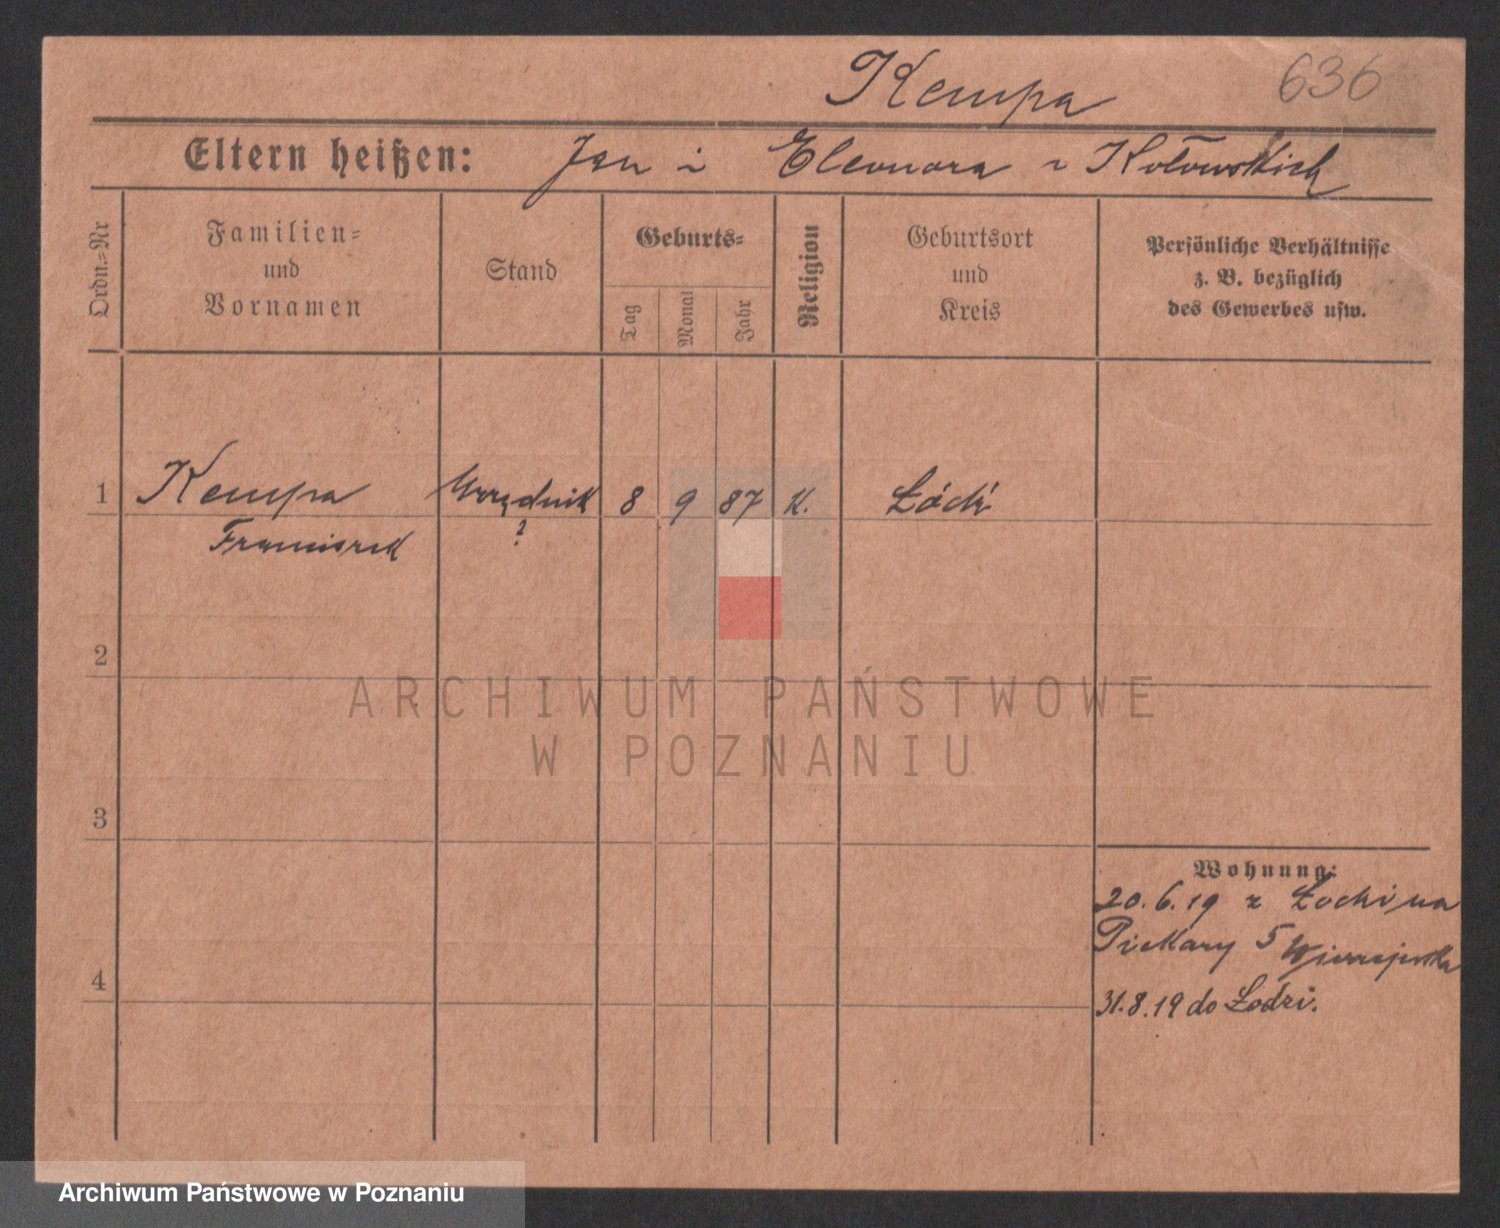 Kempa 636
Eltern heißen: Jan i Eleonora z Kotowskich
Ordn.-Nr
Familien-
und
Vornamen
Stand
Geburts-
Tag
Monat
Jahr
Religion
Geburtsort
und
Kreis
Persönliche Verhältnisse
z. B. bezüglich
des Gewerbes usw.
1 Kempa Urzędnik 8 9 87 K. Łódź
Franciszek ?
2
3
4
Wohnung:
20.6.19 z Łodzi na
Piekary 5
31.8.19 do Łodzi.
ARCHIWUM PAŃSTWOWE
W POZNANIU
Archiwum Państwowe w Poznaniu